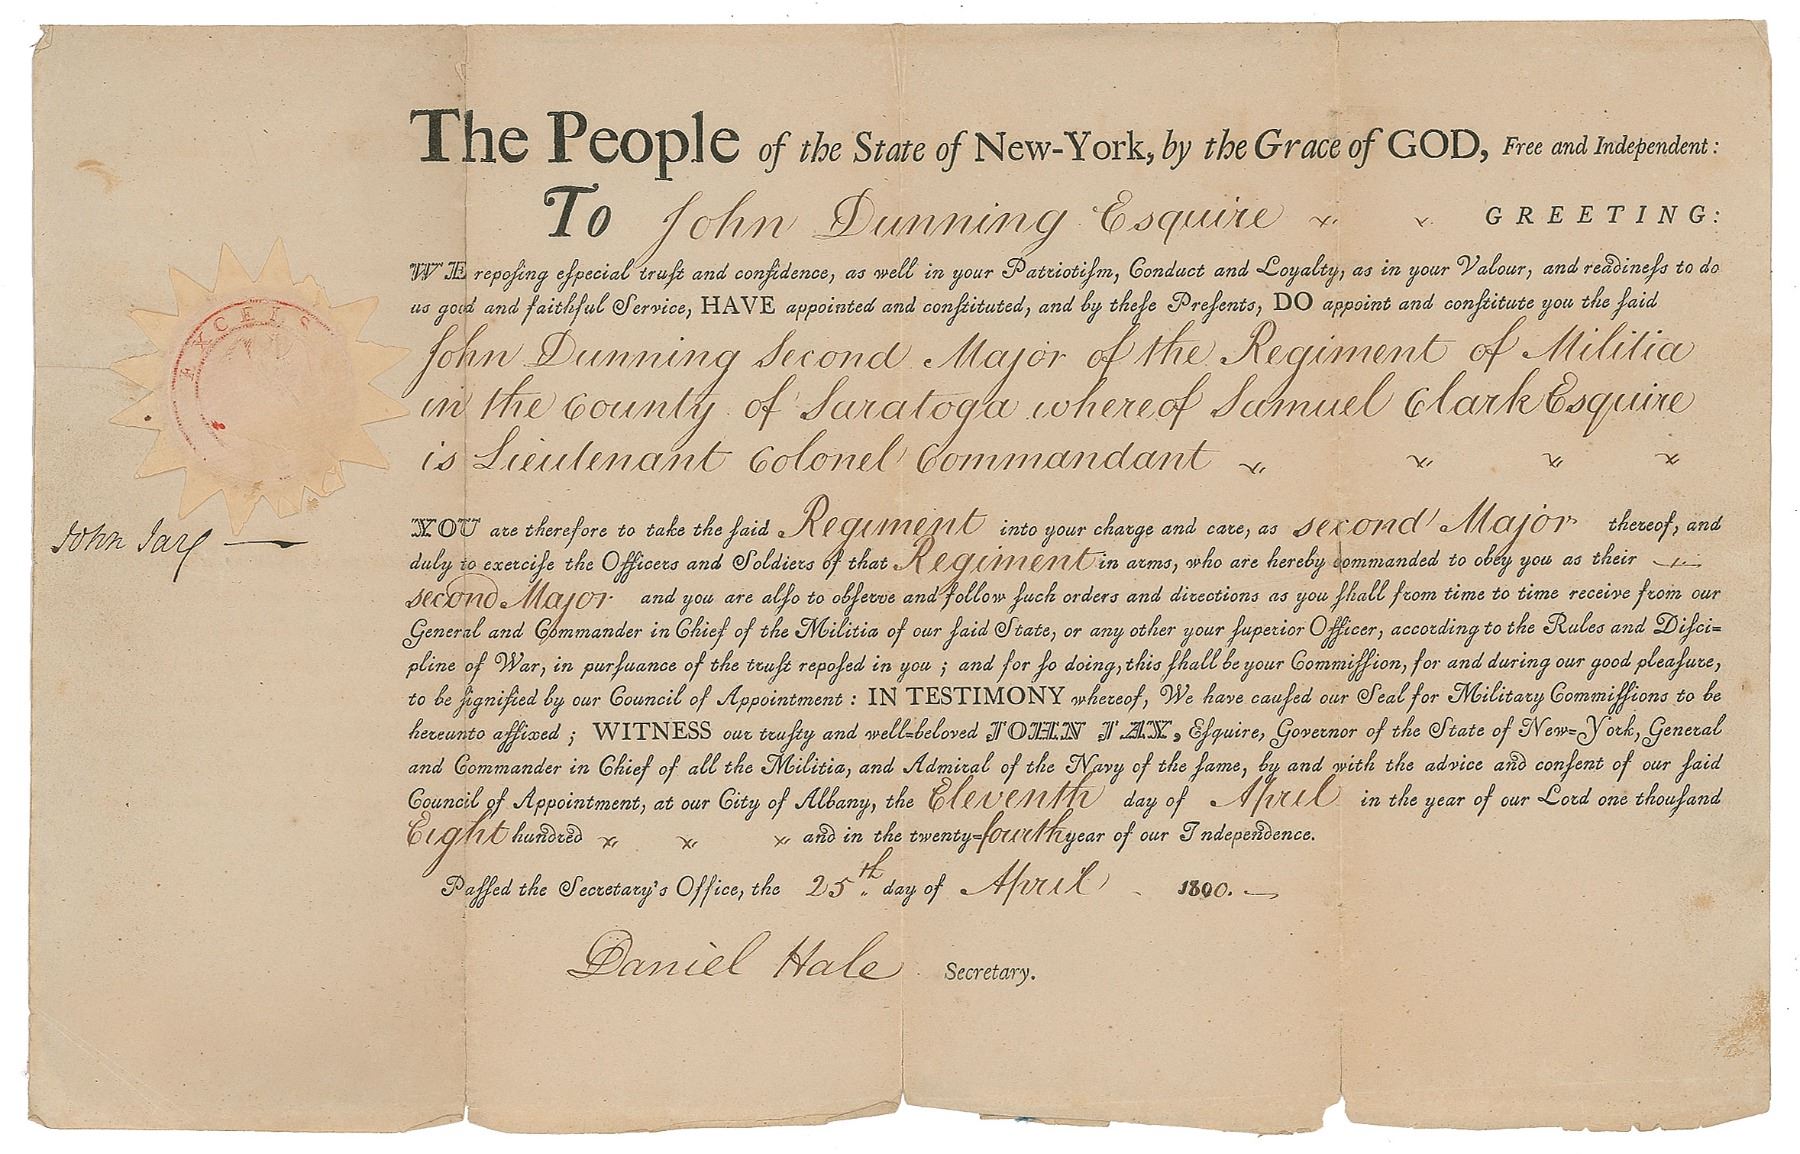 The People of the State of New-York, by the Grace of GOD, Free and Independent:
To John Dunning Esquire GREETING:
WE repoſing eſpecial truſt and confidence, as well in your Patriotiſm, Conduct and Loyalty, as in your Valour, and readineſs to do
us good and faithful Service, HAVE appointed and conſtituted, and by theſe Preſents, DO appoint and conſtitute you the ſaid
John Dunning Second Major of the Regiment of Militia
in the County of Saratoga whereof Samuel Clark Esquire
is Lieutenant Colonel Commandant
EXCELS
John Jay
YOU are therefore to take the ſaid Regiment into your charge and care, as second Major thereof, and
duly to exerciſe the Officers and Soldiers of that Regiment in arms, who are hereby commanded to obey you as their
second Major and you are alſo to obſerve and follow ſuch orders and directions as you ſhall from time to time receive from our
General and Commander in Chief of the Militia of our ſaid State, or any other your ſuperior Officer, according to the Rules and Diſci=
pline of War, in purſuance of the truſt repoſed in you ; and for ſo doing, this ſhall be your Commiſſion, for and during our good pleaſure,
to be ſignified by our Council of Appointment : IN TESTIMONY whereof, We have cauſed our Seal for Military Commiſſions to be
hereunto affixed ; WITNESS our truſty and well=beloved JOHN JAY, Eſquire, Governor of the State of New=York, General
and Commander in Chief of all the Militia, and Admiral of the Navy of the ſame, by and with the advice and conſent of our ſaid
Council of Appointment, at our City of Albany, the Eleventh day of April in the year of our Lord one thouſand
Eight hundred and in the twenty=fourth year of our Independence.
Paſſed the Secretary's Office, the 25th day of April 1800.
Daniel Hale Secretary.